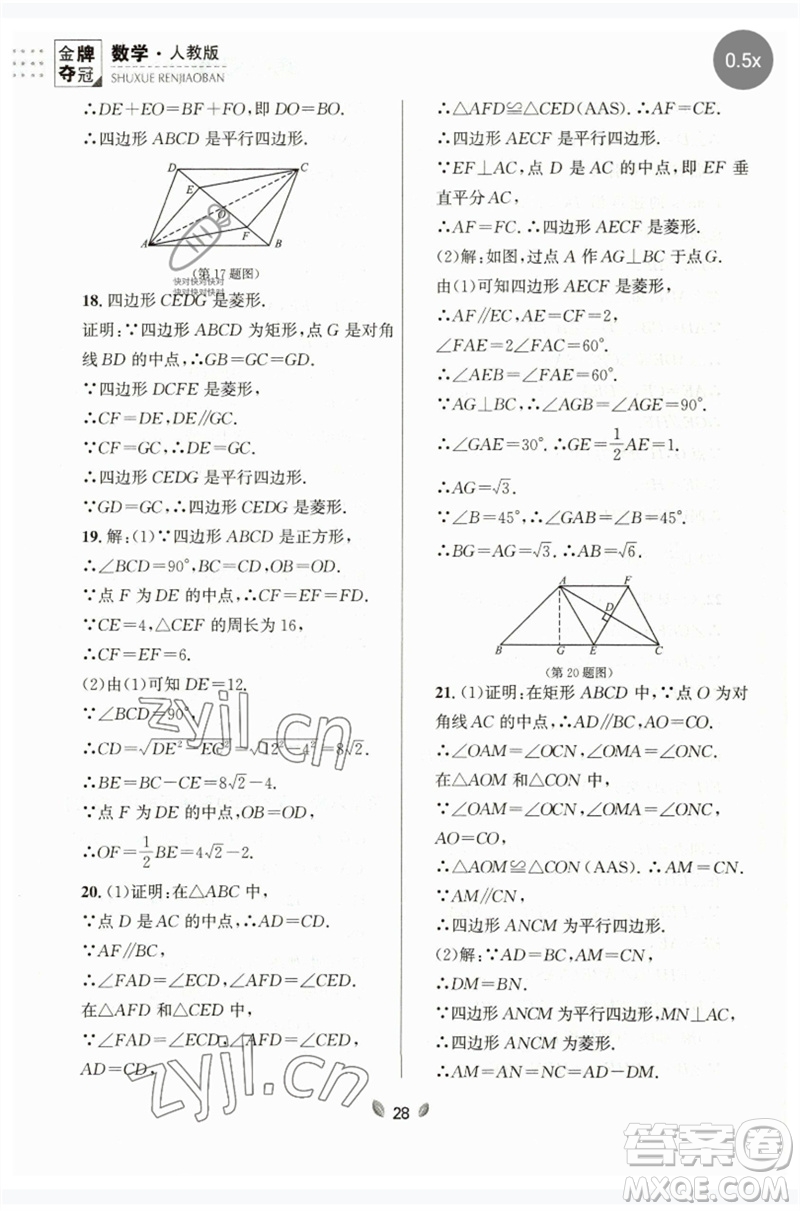 金牌夺冠
数学·人教版
SHUXUE RENJIAOBAN
0.5x
∴DE+EO=BF+FO,即 DO=BO.
∴四边形 ABCD 是平行四边形.
D
C
E
O
F
A
B
(第17题图)
快对快对快对
快对快对快对
18. 四边形 CEDG 是菱形.
证明:∵四边形 ABCD 为矩形,点 G 是对角
线 BD 的中点,∴GB=GC=GD.
∵四边形 DCFE 是菱形,
∴CF=DE,DE∥GC.
∵CF=GC,∴DE=GC.
∴四边形 CEDG 是平行四边形.
∵GD=GC,∴四边形 CEDG 是菱形.
19. 解:(1)∵四边形 ABCD 是正方形,
∴∠BCD=90°,BC=CD,OB=OD.
∵点 F 为 DE 的中点,∴CF=EF=FD.
∵CE=4,△CEF 的周长为 16,
∴CF=EF=6.
(2)由(1)可知 DE=12.
∵∠BCD=90°,
∴CD=√DE²-EC²=√12²-4²=8√2.
∴BE=BC-CE=8√2-4.
∵点 F 为 DE 的中点,OB=OD,
∴OF=1/2BE=4√2-2.
20. (1)证明:在△ABC 中,
∵点 D 是 AC 的中点,∴AD=CD.
∵AF∥BC,
∴∠FAD=∠ECD,∠AFD=∠CED.
在△AFD 和△CED 中,
∵∠FAD=∠ECD,∠AFD=∠CED,
AD=CD,
∴△AFD≌△CED(AAS). ∴AF=CE.
∴四边形 AECF 是平行四边形.
∵EF⊥AC,点 D 是 AC 的中点,即 EF 垂
直平分 AC,
∴AF=FC. ∴四边形 AECF 是菱形.
(2)解:如图,过点 A 作 AG⊥BC 于点 G.
由(1)可知四边形 AECF 是菱形,
∴AF∥EC,AE=CF=2,
∠FAE=2∠FAC=60°.
∴∠AEB=∠FAE=60°.
∵AG⊥BC,∴∠AGB=∠AGE=90°.
∴∠GAE=30°. ∴GE=1/2AE=1.
∴AG=√3.
∵∠B=45°,∴∠GAB=∠B=45°.
∴BG=AG=√3. ∴AB=√6.
A
F
D
B
G
E
C
(第20题图)
21. (1)证明:在矩形 ABCD 中,∵点 O 为对
角线 AC 的中点,∴AD∥BC,AO=CO.
∴∠OAM=∠OCN,∠OMA=∠ONC.
在△AOM 和△CON 中,
∵∠OAM=∠OCN,∠OMA=∠ONC,
AO=CO,
∴△AOM≌△CON(AAS). ∴AM=CN.
∵AM∥CN,
∴四边形 ANCM 为平行四边形.
(2)解:∵AD=BC,AM=CN,
∴DM=BN.
∵四边形 ANCM 为平行四边形,MN⊥AC,
∴四边形 ANCM 为菱形.
∴AM=AN=NC=AD-DM.
28
zyjl.cn
zyjl.cn
答案圈
MXQE.COM